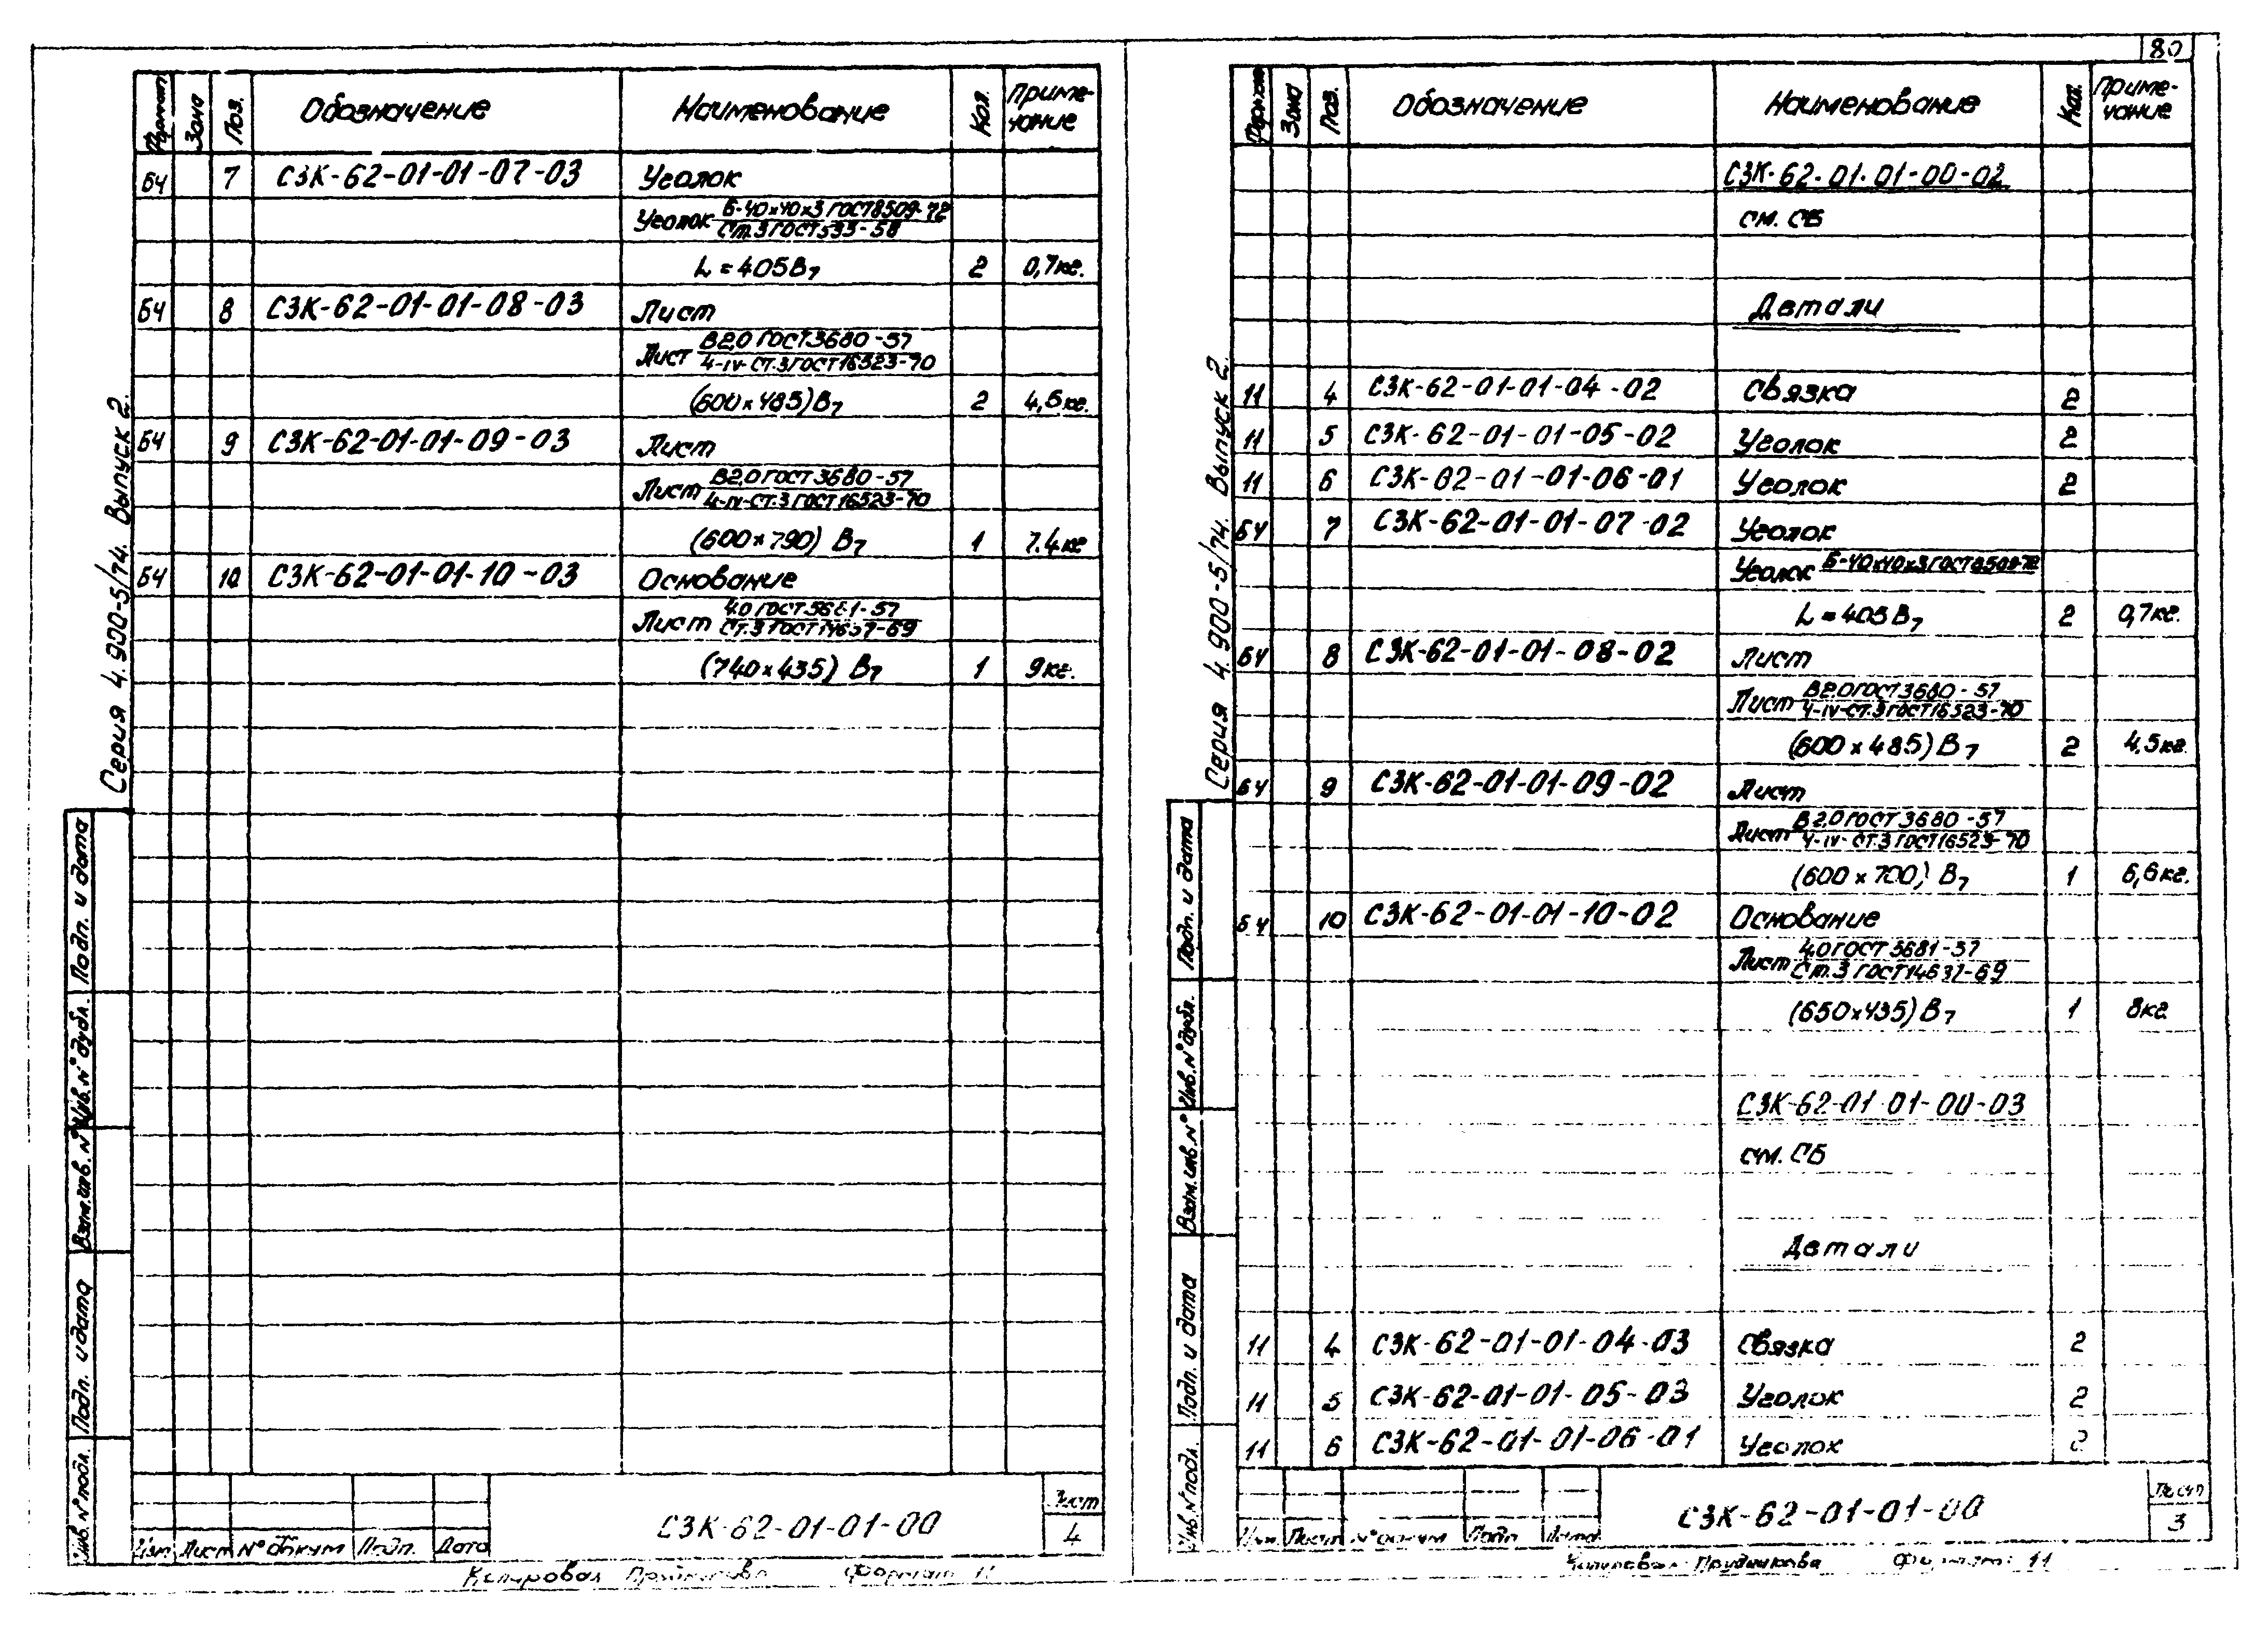 80
Серия 4.900-5/74. Выпуск 2.
Формат Зона Поз. Обозначение Наименование Кол. Приме-чание
БЧ 7 СЗК-62-01-01-07-03 Уголок
Уголок Б-40х40х3 ГОСТ 8509-72
Ст.3 ГОСТ 535-58
L = 405 В7 2 0,7кг.
БЧ 8 СЗК-62-01-01-08-03 Лист
Лист В2,0 ГОСТ 3680-57
4-IV-Ст.3 ГОСТ 16523-70
(600х485) В7 2 4,5кг.
БЧ 9 СЗК-62-01-01-09-03 Лист
Лист В2,0 ГОСТ 3680-57
4-IV-Ст.3 ГОСТ 16523-70
(600х790) В7 1 7.4кг
БЧ 10 СЗК-62-01-01-10-03 Основание
Лист 4.0 ГОСТ 5681-57
Ст.3 ГОСТ 14637-69
(740х435) В7 1 9кг.
Подп. и дата
Инв. № дубл.
Взам. инв. №
Подп. и дата
Инв. № подл.
Изм Лист № докум Подп. Дата
СЗК-62-01-01-00
Лист
4
Копировал Формат 11
Серия 4.900-5/74. Выпуск 2.
Формат Зона Поз. Обозначение Наименование Кол. Приме-чание
СЗК-62-01-01-00-02
см. СБ
Детали
11 4 СЗК-62-01-01-04-02 Связка 2
11 5 СЗК-62-01-01-05-02 Уголок 2
11 6 СЗК-62-01-01-06-01 Уголок 2
БЧ 7 СЗК-62-01-01-07-02 Уголок
Уголок Б-40х40х3 ГОСТ 8509-72
L = 405 В7 2 0,7кг.
БЧ 8 СЗК-62-01-01-08-02 Лист
Лист В2.0 ГОСТ 3680-57
4-IV-Ст.3 ГОСТ 16523-70
(600х485) В7 2 4,5кг.
БЧ 9 СЗК-62-01-01-09-02 Лист
Лист В2,0 ГОСТ 3680-57
4-IV-Ст.3 ГОСТ 16523-70
(600х700) В7 1 6,6кг.
БЧ 10 СЗК-62-01-01-10-02 Основание
Лист 4.0 ГОСТ 5681-57
Ст.3 ГОСТ 14637-69
(650х435) В7 1 8кг
СЗК-62-01-01-00-03
см. СБ
Детали
11 4 СЗК-62-01-01-04-03 Связка 2
11 5 СЗК-62-01-01-05-03 Уголок 2
11 6 СЗК-62-01-01-06-01 Уголок 2
Подп. и дата
Инв. № дубл.
Взам. инв. №
Подп. и дата
Инв. № подл.
Изм Лист № докум Подп Дата
СЗК-62-01-01-00
Лист
3
Копировал Прудникова Формат 11